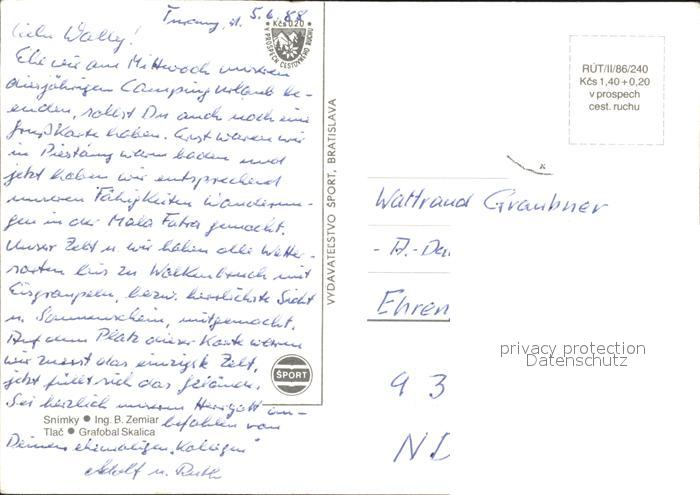 Turany, d. 5.6.88
Liebe Wally!
Ehe wir am Mittwoch unseren
diesjährigen Campingurlaub be-
enden, sollst Du auch noch eine
Grußkarte haben. Erst waren wir
in Piestany warm baden und
jetzt haben wir entsprechend
unseren Fähigkeiten Wanderun-
gen in der Mala Fatra gemacht.
Unser Zelt u. wir haben alle Wetter-
sorten bis zu Wolkenbruch mit
Eisgraupeln, bezw. herrlichste Sicht
u. Sonnenschein, mitgemacht.
Auf dem Platz dieser Karte waren
wir zuerst das einzigste Zelt,
jetzt füllt sich das Gelände.
Sei herzlich unserem Herrgott an-
befohlen von
Deinen ehemaligen „Kollegen"
Adolf u. Ruth
Snímky • Ing. B. Zemiar
Tlač • Grafobal Skalica
Kčs 0.20
V PROSPECH CESTOVNÉHO RUCHU
VYDAVATEĽSTVO ŠPORT, BRATISLAVA
ŠPORT
RÚT/II/86/240
Kčs 1,40 + 0,20
v prospech
cest. ruchu
Waltraud Graubner
Ehren
93
privacy protection
Datenschutz